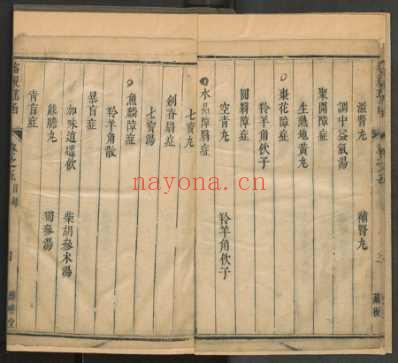 滋腎丸　補腎丸
調中益氣湯
聚開障症
生熟地黃丸
棗花障症
羚羊角飲子
圓翳障症
空青丸　羚羊角飲子
水晶障翳症
七寶丸
劍脊翳症
七寶湯
魚鱗障症
羚羊角散
暴盲症
加味逍遙飲　柴胡參朮湯
熊膽丸　獨參湯
青盲症
nayona.cn